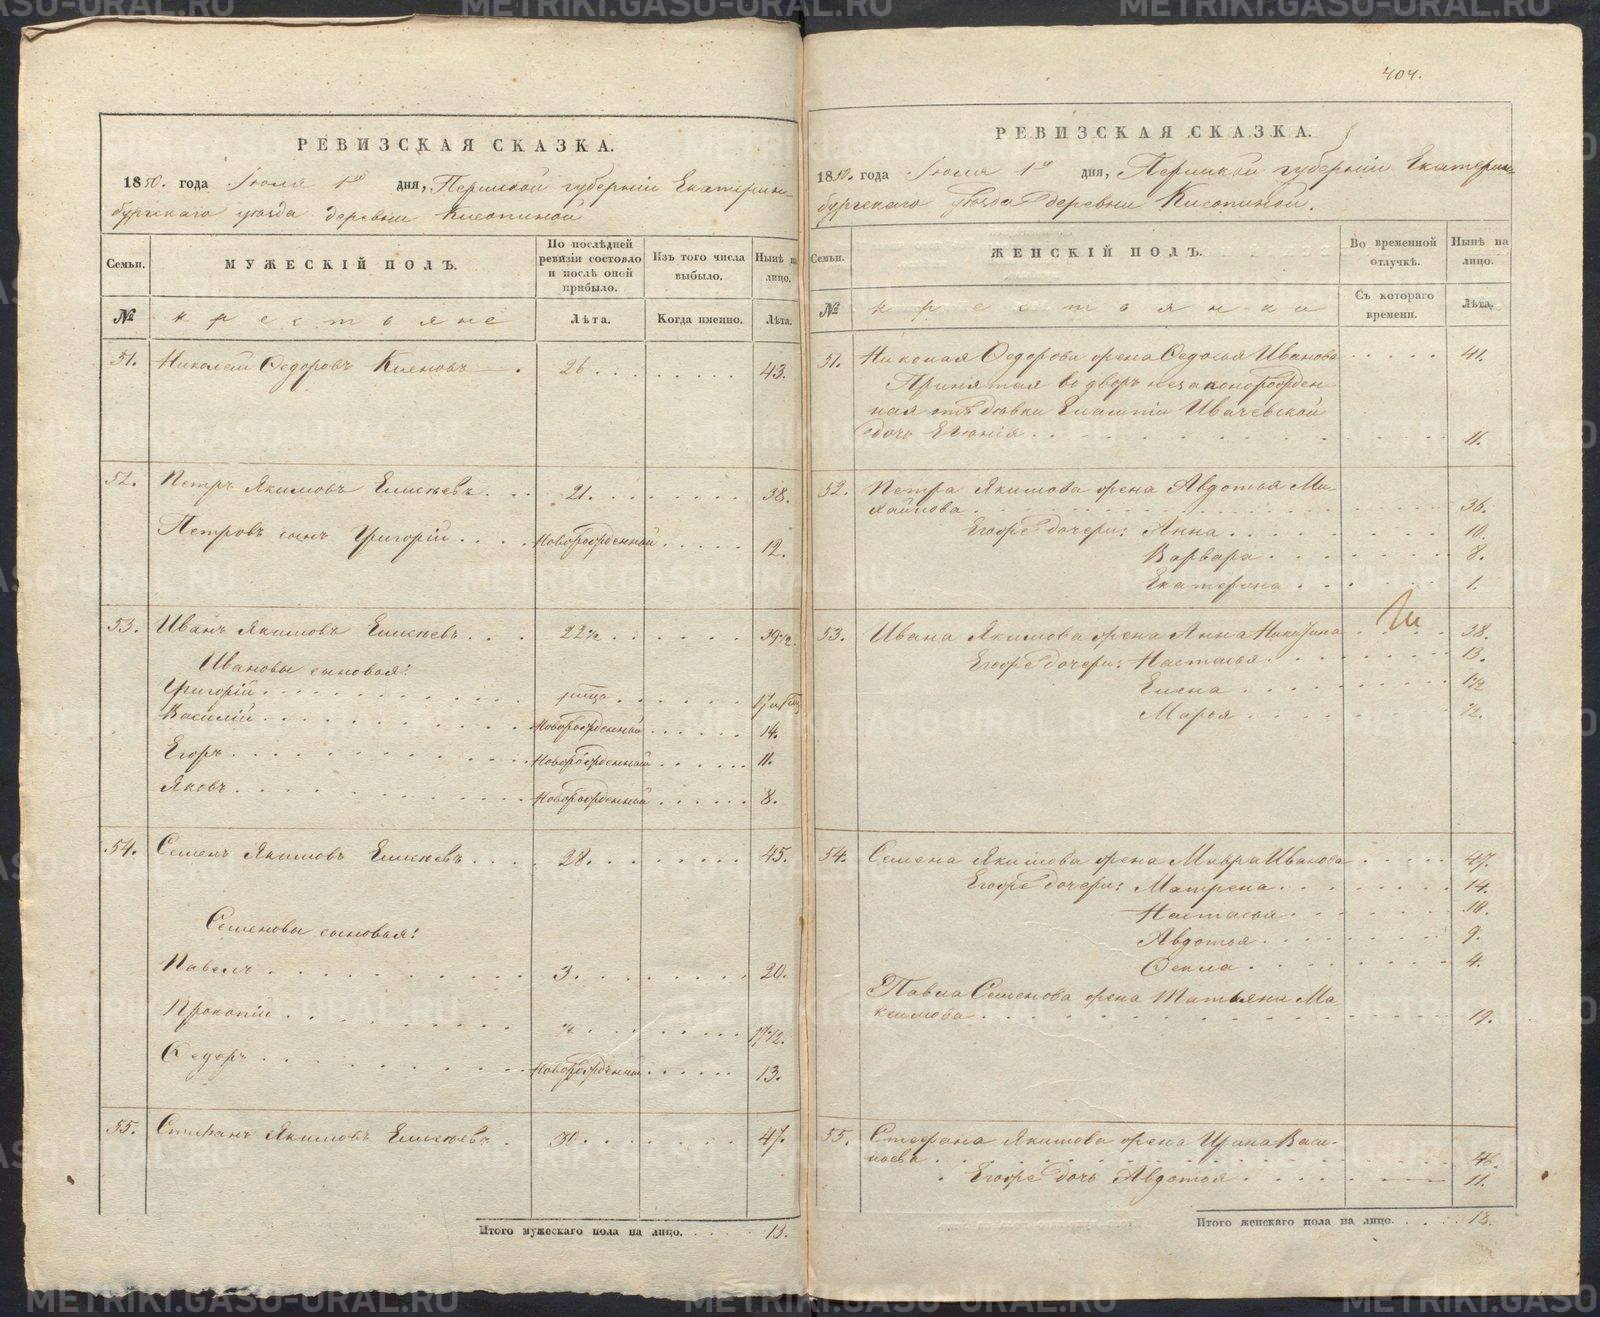 404.
РЕВИЗСКАЯ СКАЗКА.
1850. года Іюля 1го дня, Пермской губерніи Екатерин-
бургскаго уѣзда деревни
Семьи.
МУЖЕСКІЙ ПОЛЪ.
По послѣдней ревизіи состояло и послѣ оной прибыло.
Изъ того числа выбыло.
Нынѣ на лицо.
№
крестьяне
Лѣта.
Когда именно.
Лѣта.
51. Николай Ѳедоровъ 26 43.
52. Петръ Якимовъ 21. 38.
Петровъ сынъ Григорій Новорожденный 12.
53. Иванъ Якимовъ 22½ 39½.
Ивановы сыновья:
Григорій 17
Василій Новорожденный 14.
Егоръ Новорожденный 11.
Яковъ Новорожденный 8.
54. Семенъ Якимовъ 28. 45.
Семеновы сыновья:
Павелъ 3. 20.
Прокопій ½ 17½.
Ѳедоръ Новорожденный 13.
55. Стефанъ Якимовъ 30. 47.
Итого мужескаго пола на лицо. 13.
РЕВИЗСКАЯ СКАЗКА.
1850. года Іюля 1го дня, Пермской губерніи Екатерин-
бургскаго уѣзда деревни
Семьи.
ЖЕНСКІЙ ПОЛЪ.
Во временной отлучкѣ.
Нынѣ на лицо.
№
крестьянки
Съ котораго времени.
Лѣта.
51. Николая Ѳедорова жена Ѳедосья Иванова 41.
Принятая во дворъ незаконорожден-
ная отъ дѣвки
дочь 11.
52. Петра Якимова жена Авдотья Ми-
хайлова 36.
Его же дочери: Анна 10.
Варвара 8.
Екатерина 1.
53. Ивана Якимова жена Анна 38.
Его же дочери: Настасья 13.
Елена 1½
Марья ½.
54. Семена Якимова жена Мавра Иванова 47.
Его же дочери: Матрена 14.
Настасья 10.
Авдотья 9.
Ѳекла 4.
Павла Семенова жена Татьяна Ма-
ксимова 19.
55. Стефана Якимова жена Ирина Васи-
льева 46.
Его же дочь Авдотья 11.
Итого женскаго пола на лицо. 18.
METRIKI.GASO-URAL.RU